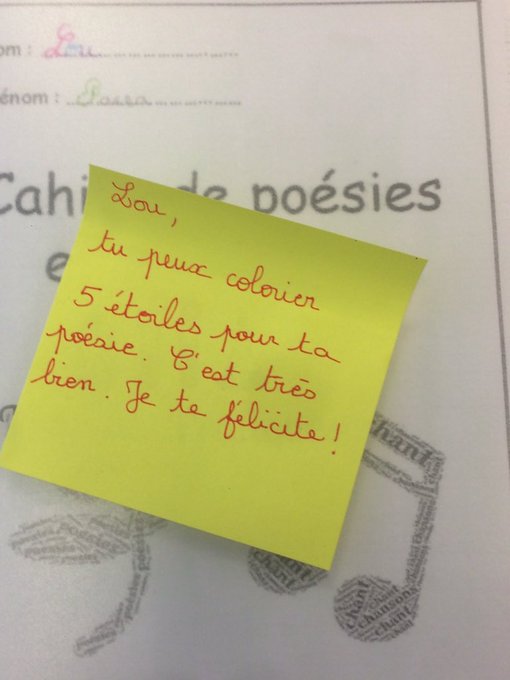 om : Lou
énom : Parra
Cahi de poésies
e
Lou,
tu peux colorier
5 étoiles pour ta
poésie. C'est très
bien. Je te félicite !
chant
chant
chansons
chant